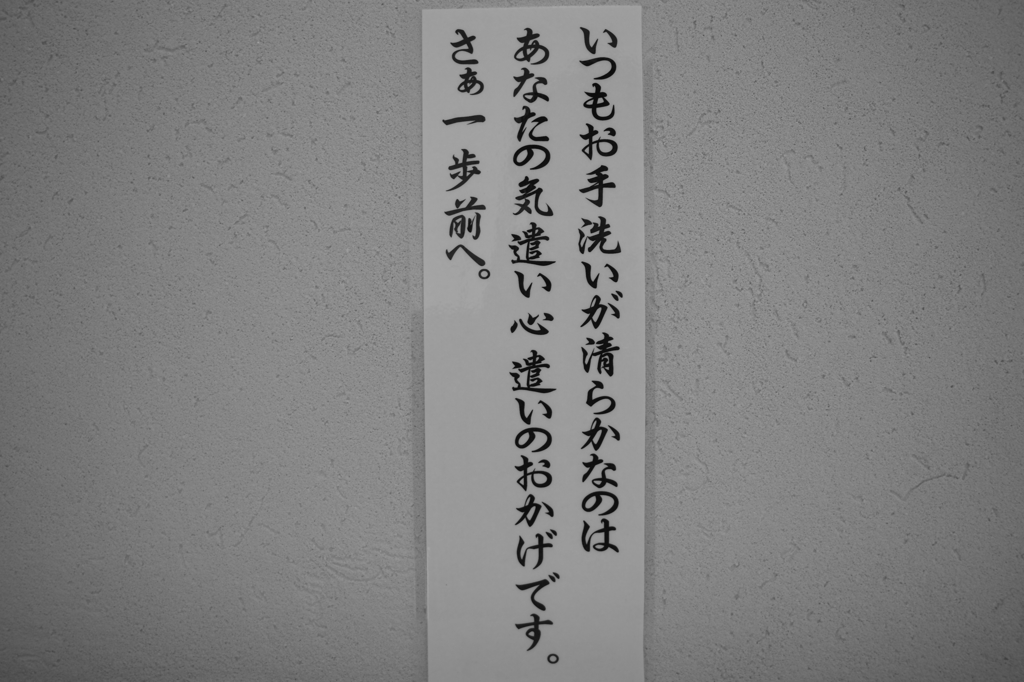 いつもお手洗いが清らかなのは
あなたの気遣い心遣いのおかげです。
さぁ一歩前へ。